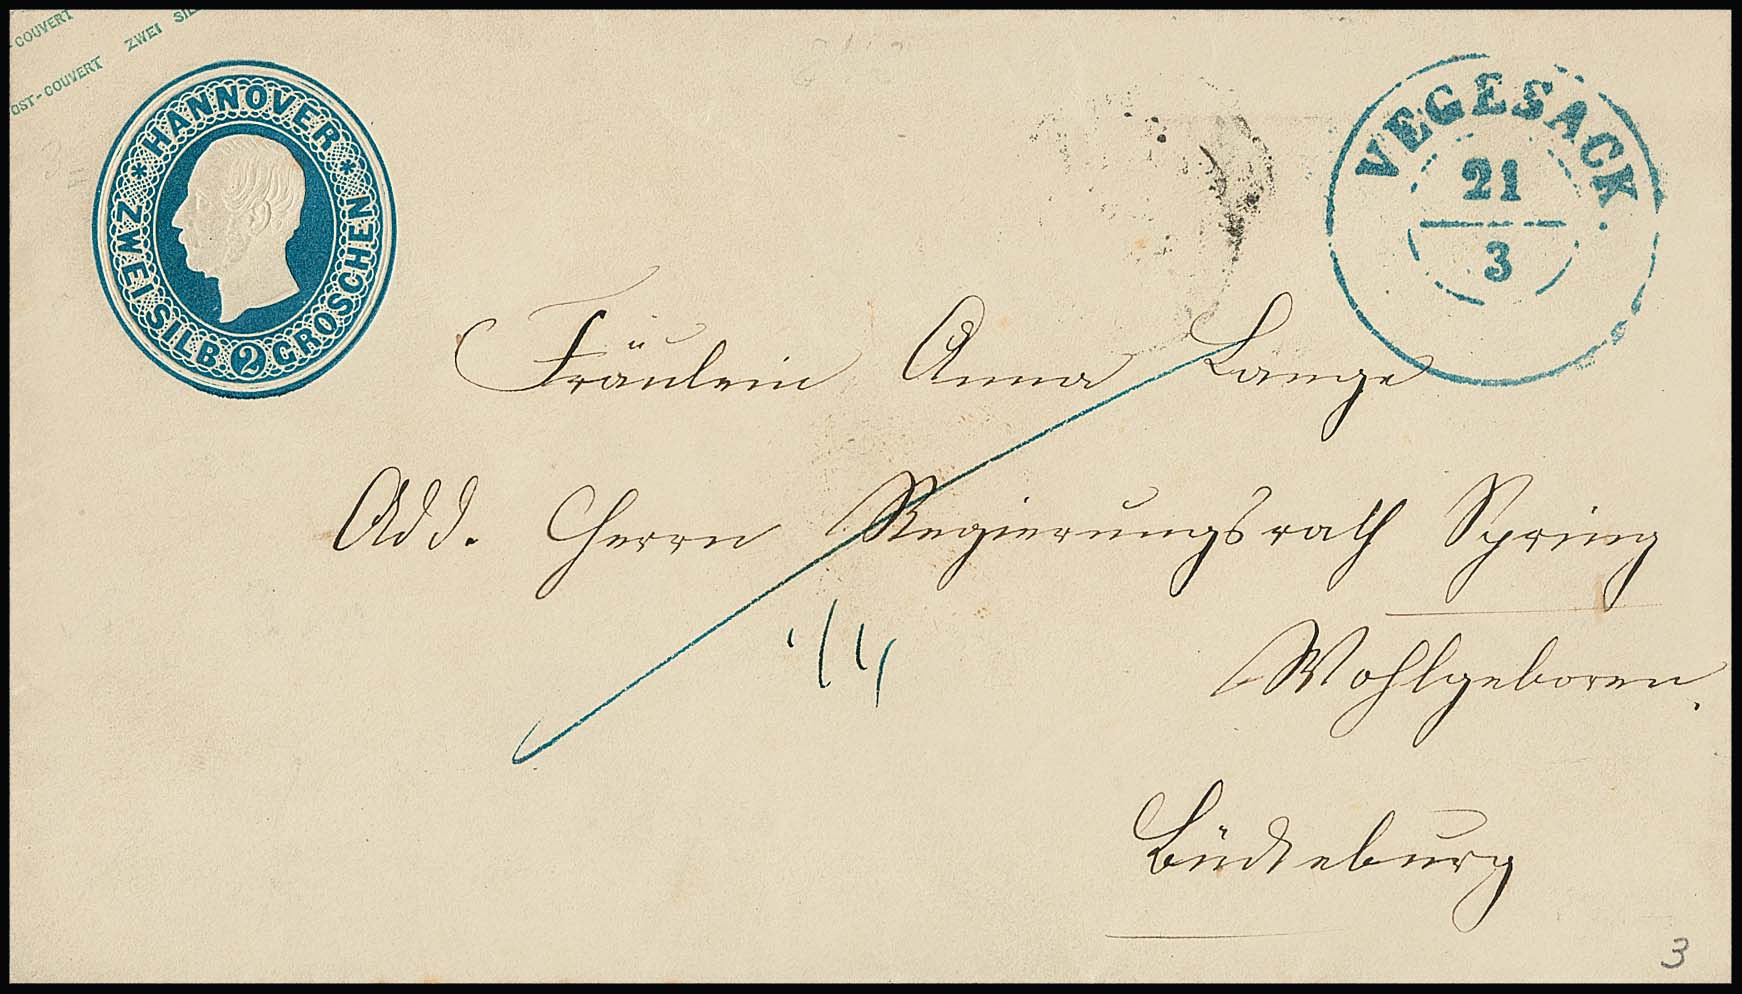 -COUVERT
OST-COUVERT ZWEI SIL
* HANNOVER *
ZWEI SILB. 2 GROSCHEN
VEGESACK.
21
3
Fräulein Anna Lange
Add. Herrn Regierungsrath Spring
Wohlgeboren.
Bückeburg
3